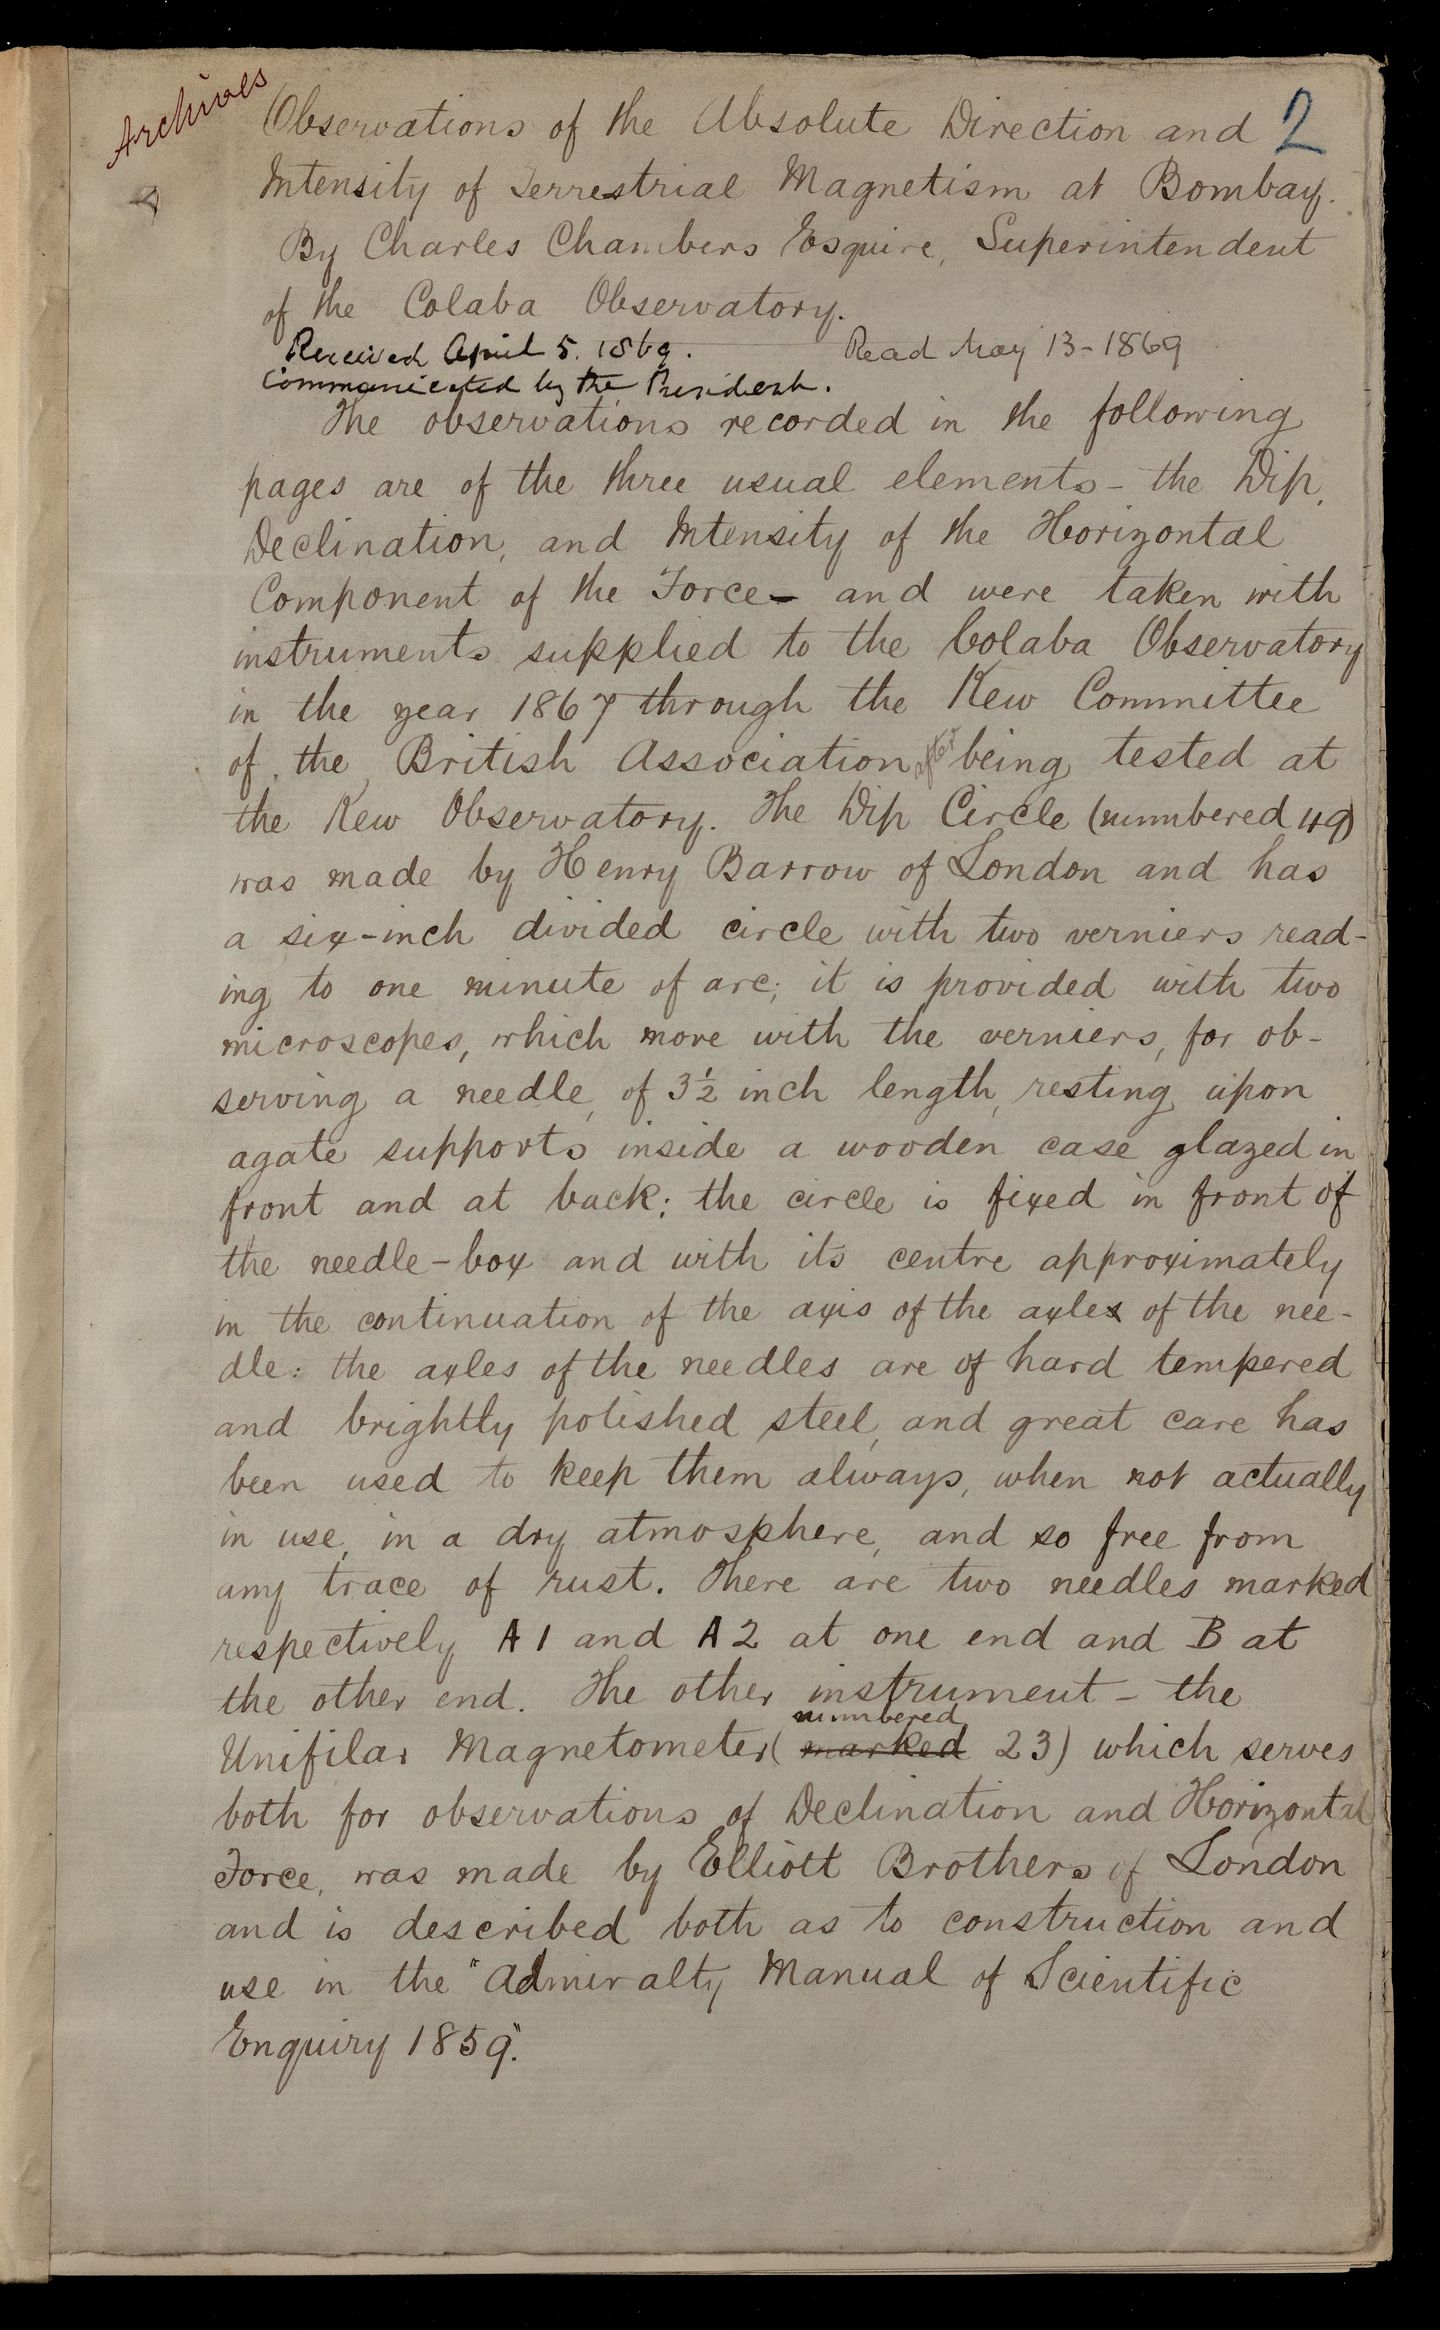 Archives
2
Observations of the Absolute Direction and
Intensity of Terrestrial Magnetism at Bombay.
By Charles Chambers Esquire, Superintendent
of the Colaba Observatory.
Received April 5. 1869. Read May 13 - 1869
Communicated by the President.
The observations recorded in the following
pages are of the three usual elements - the Dip,
Declination, and Intensity of the Horizontal
Component of the Force - and were taken with
instruments supplied to the Colaba Observatory
in the year 1867 through the Kew Committee
of the British Association after being tested at
the Kew Observatory. The Dip Circle (numbered 49)
was made by Henry Barrow of London and has
a six-inch divided circle with two verniers read-
ing to one minute of arc; it is provided with two
microscopes, which move with the verniers, for ob-
serving a needle, of 3½ inch length, resting upon
agate supports inside a wooden case glazed in
front and at back; the circle is fixed in front of
the needle-box and with its centre approximately
in the continuation of the axis of the axles of the nee-
dle: the axles of the needles are of hard tempered
and brightly polished steel, and great care has
been used to keep them always, when not actually
in use, in a dry atmosphere, and so free from
any trace of rust. There are two needles marked
respectively A 1 and A 2 at one end and B at
the other end. The other instrument - the
numbered
Unifilar Magnetometer (marked 23) which serves
both for observations of Declination and Horizontal
Force, was made by Elliott Brothers of London
and is described both as to construction and
use in the "Admiralty Manual of Scientific
Enquiry 1859".